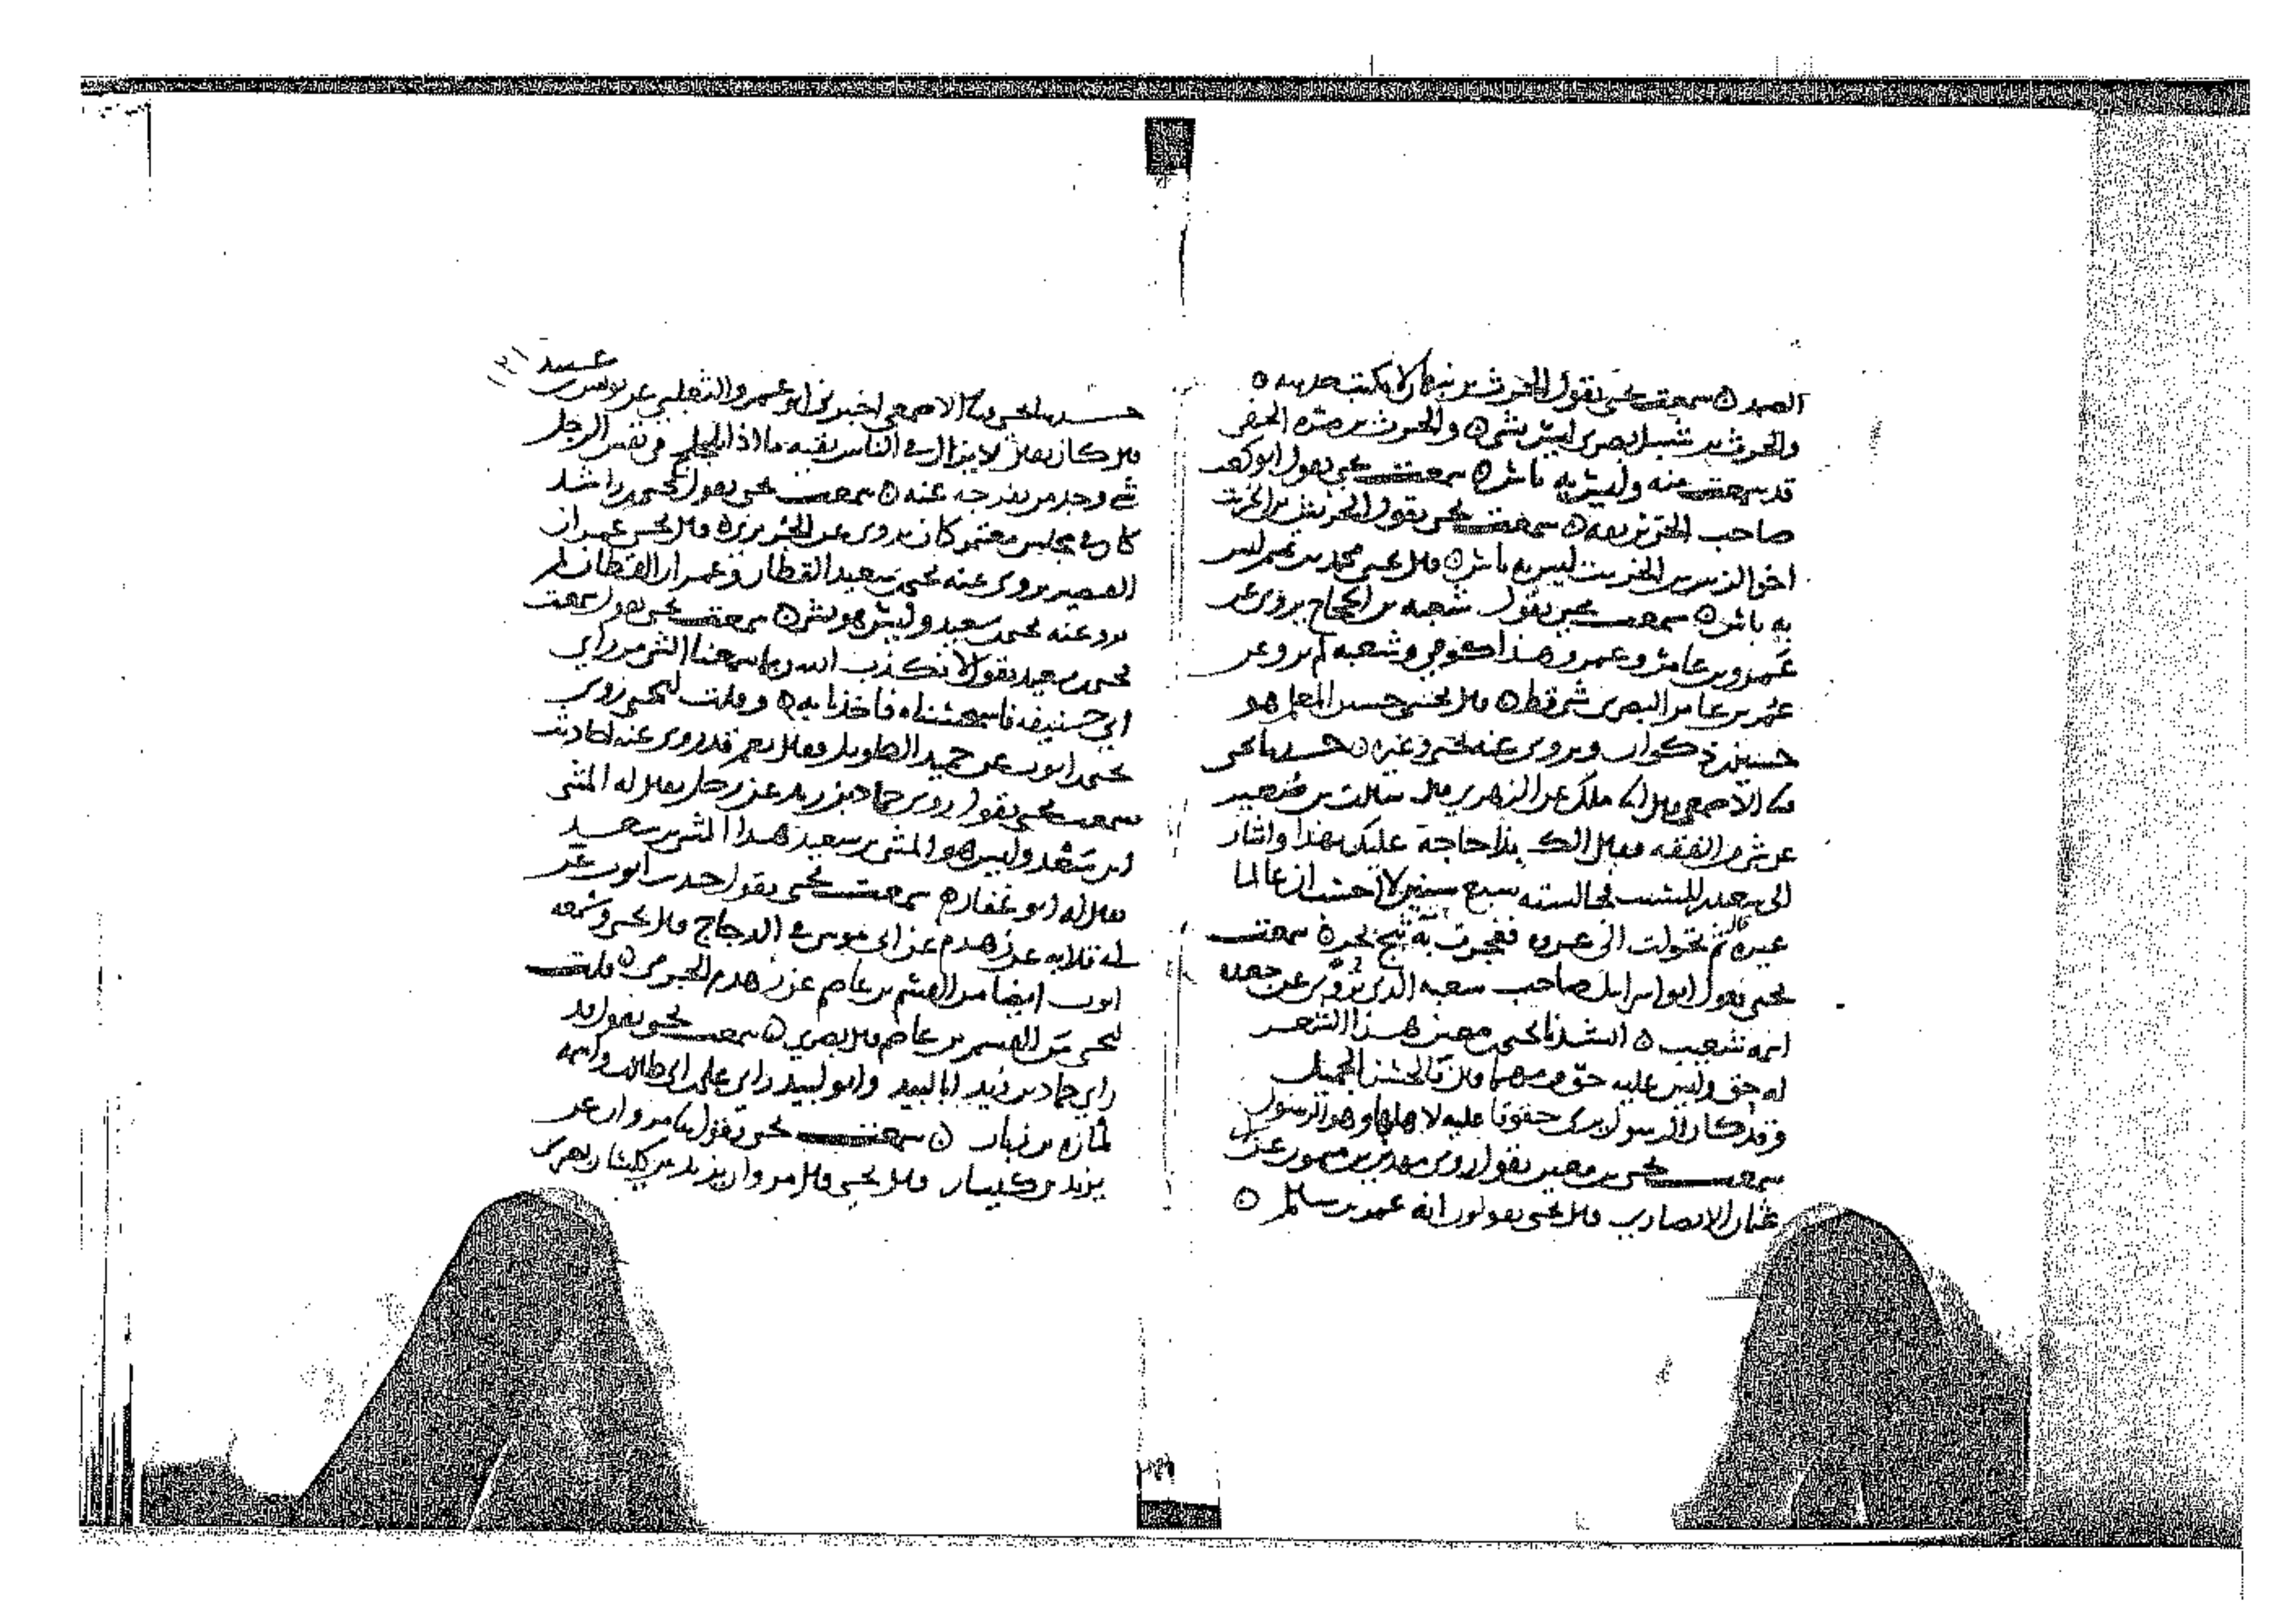 الصمد ۝ سمعت يحيى يقول الحرث بن نبهان لا يكتب حديثه ۝
والحرث بن شبيل بصرى ليس بشى ۝ والحرث بن مره الحنفى
قد سمعت منه وليس به باس ۝ سمعت يحيى يقول ابو كعب
صاحب الحرير ثقه ۝ سمعت يحيى يقول الحريش بن الخريت
اخو الزبير بن الخريت ليس به باس ۝ قال يحيى محمد بن تميم ليس
به باس ۝ سمعت يحيى يقول شعبه بن الحجاج يروى عن
عمرو بن عامر وعمرو هذا كوفى وشعبه لم يرو عن
عمر بن عامر البصرى شى قط ۝ قال يحيى حسين المعلم هو
حسين ذكوان ويروى عنه يحيى وغيره ۝ حدثنا يحيى
نا الاصمعى قال انا ملك عن الزهرى قال سالت بن صعير
عن شى من الفقه فقال الك بذا حاجة عليك بهذا واشار
الى سعيد بن المسيب فجالسته سبع سنين لا احسب ان عالما
غيره قال ثم تحولت الى عروه ففجرت به ثبج بحر ۝ سمعت
يحيى يقول ابو اسرايل صاحب شعبه الذى يروى عن جعده
اسمه شعيب ۝ انشدنا يحيى بن معين هذا الشعر
له حق وليس عليه حق ومهما قال فالحسن الجميل
وقد كان الرسول يرى حقوقا عليه لاهلها وهو الرسول
سمعت يحيى بن معين يقول روى مهدى بن ميمون عن
عثمان الانصارى قال يحيى يقولون انه عمرو بن سالم ۝
حدثنا يحيى نا الاصمعى اخبرنى ابو عمرو الثعلبى عن يونس بن عبيد
قال كان يقال لا يزال فى الناس بقيه ما اذا تلجلج فى نفس الرجل
شى وجد من يفرجه عنه ۝ سمعت يحيى يقول يحيى بن راشد
كان فى مجلس معتمر كان يروى عن الجريرى ۝ قال يحيى عمران
القصير يروى عنه يحيى بن سعيد القطان وعمران القطان لم
يرو عنه يحيى بن سعيد وليس هو بشى ۝ سمعت يحيى يقول سمعت
يحيى بن سعيد يقول لا نكذب الله ربما سمعنا الشى من راى
ابى حنيفه فاستحسناه فاخذنا به ۝ وقلت ليحيى يروى
يحيى بن ايوب عن حميد الطويل فقال نعم قد روى عنه احاديث
سمعت يحيى يقول روى حماد بن زيد عن رجل يقال له المثنى
ابن سعد وليس هو المثنى بن سعيد هذا المثنى بن سعيد
يقال له ابو غفار ۝ سمعت يحيى يقول حدث ايوب عن
ابى قلابه عن زهدم عن ابى موسى فى الدجاج قال يحيى وسمعه
ايوب ايضا من القسم بن عاصم عن زهدم الجرمى ۝ قلت
ليحيى من القسم بن عاصم قال بصرى ۝ سمعت يحيى يقول قد
راى حماد بن زيد ابا لبيد وابو لبيد راى على بن ابى طالب واسمه
لمازه بن زبار ۝ سمعت يحيى يقول نا مروان عن
يزيد بن كيسان قال يحيى قال مروان يزيد بن كيسان بصرى